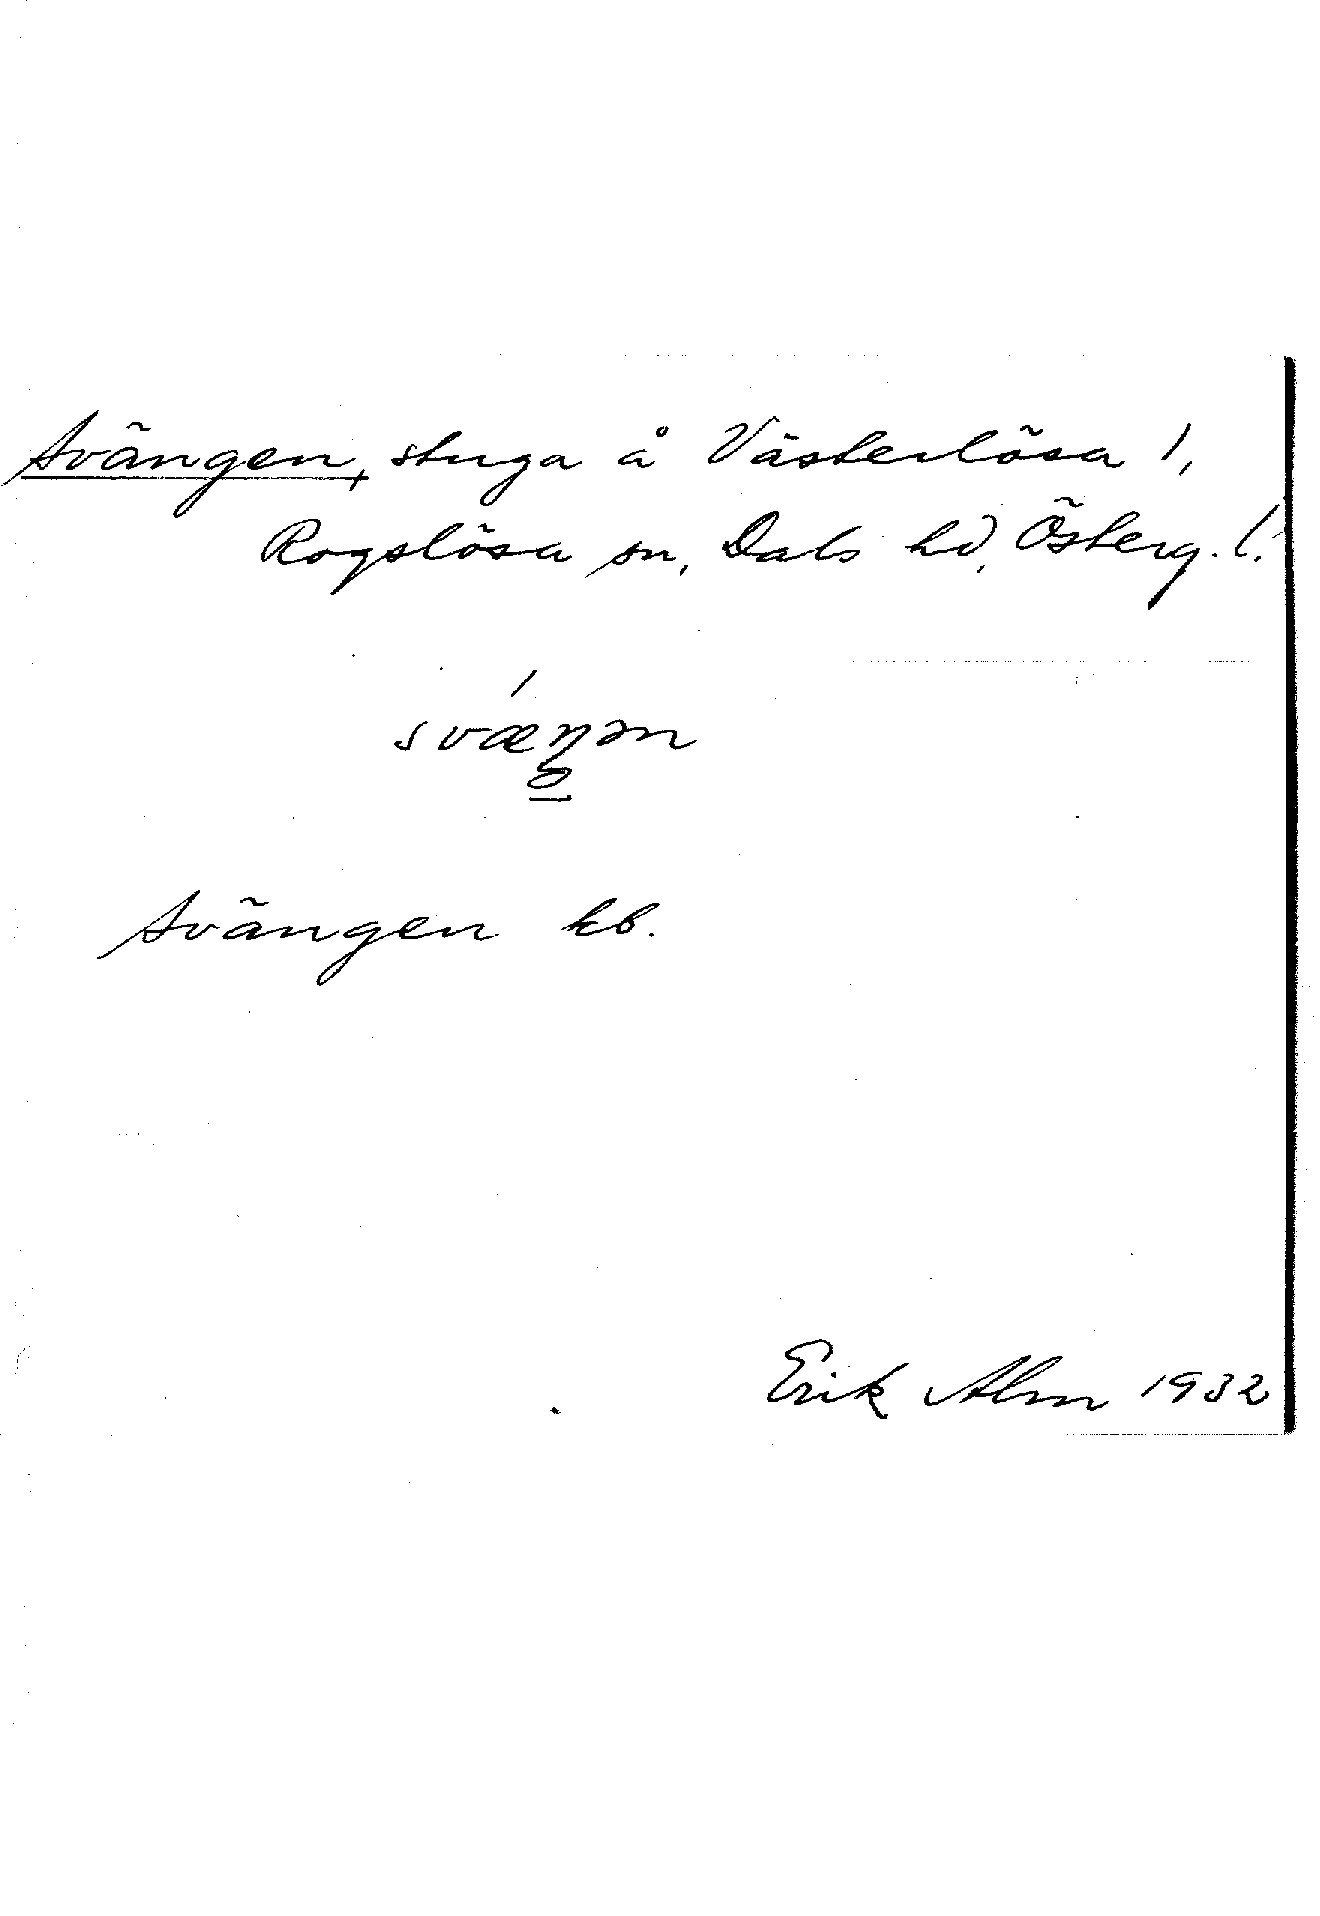 Svängen, stuga å Västerlösa 1,
Rogslösa sn, Dals hd, Österg. l.
svæŋən
Svängen kb.
Erik Alm 1932